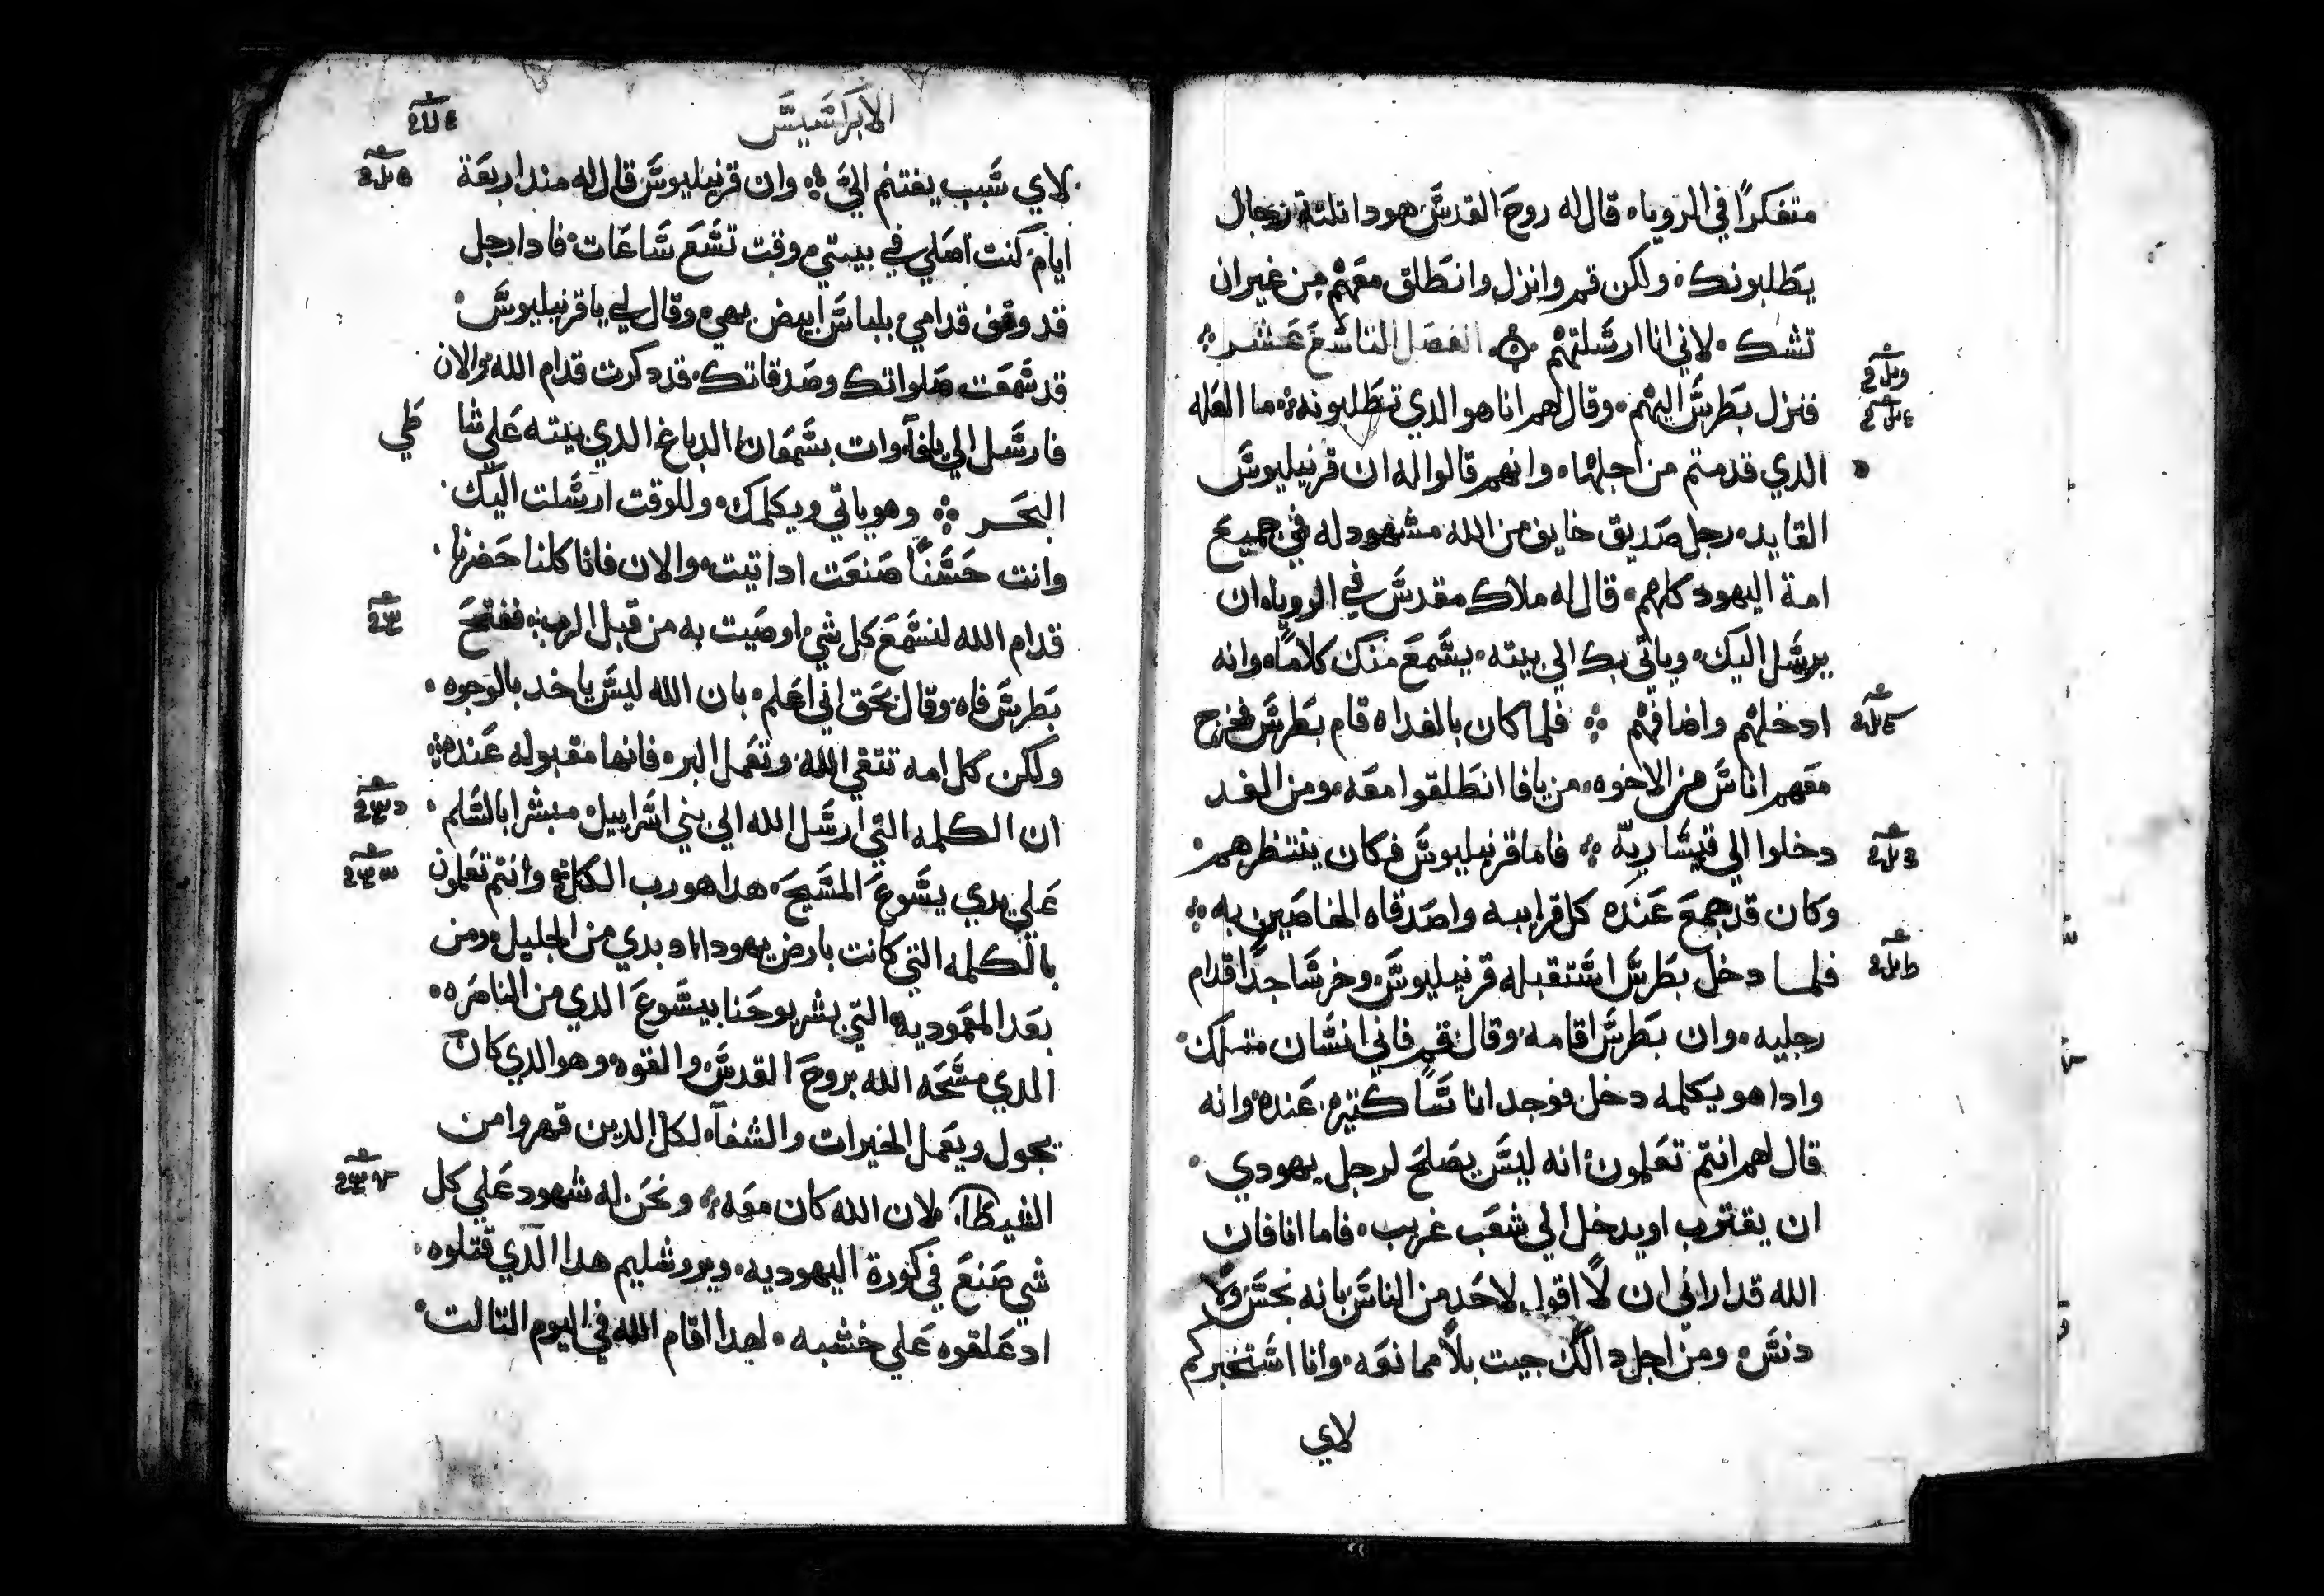 متفكراً في الرويا، قال له روح القدس هودا تلتة رجال
يطلبونك، ولكن قم وانزل وانطلق معهم من غير ان
تشك، لاني انا ارسلتهم، الفصل التاسع عشر
فنزل بطرس اليهم، وقال لهم انا هو الدي تطلبونه، ما العله
الدي قدمتم من اجلها، وانهم قالوا له ان قرنيليوس
القايد، رجل صديق خايف من الله مشهود له في جميع
امة اليهود كلهم، قال له ملاك مقدس في الرويا، ان
يرسل اليك، وياتي بك الي بيته، يسمع منك كلاماً، وانه
ادخلهم واضافهم، فلما كان بالغداه قام بطرس فخرج
معهم اناس من الاخوه، من يافا انطلقوا معه، ومن الغد
دخلوا الي قيساريه، فاما قرنيليوس فكان ينتظرهم
وكان قد جمع عنده كل قرايبه واصدقاه الخاصين به
فلما دخل بطرس استقبله قرنيليوس، وخر ساجداً قدام
رجليه، وان بطرس اقامه، وقال قم فاني انسان متلك
وادا هو يكلمه دخل، فوجد اناساً كتيره عنده، وانه
قال لهم انتم تعلمون، انه ليس يصلح لرجل يهودي
ان يقترب او يدخل الي شعب غريب، فاما انا فان
الله قد اراني ان لا اقول لاحد من الناس بانه نجس ولا
دنس، ومن اجل دالك جيت بلا ممانعه، وانا استخبركم
لاي
الابركسيس
لاي سبب يعتتم الي، وان قرنيليوس قال له مند اربعة
ايام كنت اصلي في بيتي، وقت تسع ساعات، فادا رجل
قد وقف قدامي، بلباس ابيض بهي، وقال لي يا قرنيليوس
قد سمعت صلواتك وصدقاتك، قد دكرت قدام الله، والان
فارسل الي يافا، وات بسمعان الدباغ الدي بيته علي شا
طي
البحر، وهو ياتي ويكلمك، وللوقت ارسلت اليك
وانت حسناً صنعت ادا تيت، والان فانا كلنا حضرنا
قدام الله لنسمع كل شي اوصيت به من قبل الرب، ففتح
بطرس فاه، وقال بحق اني اعلم، بان الله ليس ياخد بالوجوه
ولكن كل امه تتقي الله، وتعمل البر، فانها مقبوله عنده
ان الكلمه التي ارسل الله الي بني اسراييل، مبشرا بالسلم
علي يدي يسوع المسيح، هدا هو رب الكل، وانتم تعلمون
بالكلمه التي كانت بارض يهودا، اد بدي من الجليل، ومن
بعد المعموديه، التي بشر يوحنا بيسوع الدي من الناصره
الدي مسحه الله بروح القدس، والقوه، وهو الدي كان
يجول ويعمل الخيرات والشفآ، لكل الدين قهروا من
الشيطان، لان الله كان معه، ونحن له شهود علي كل
شي صنع في كورة اليهوديه، ويروشليم هدا الدي قتلوه
اد علقوه علي خشبه، لهدا اقام الله في اليوم التالت